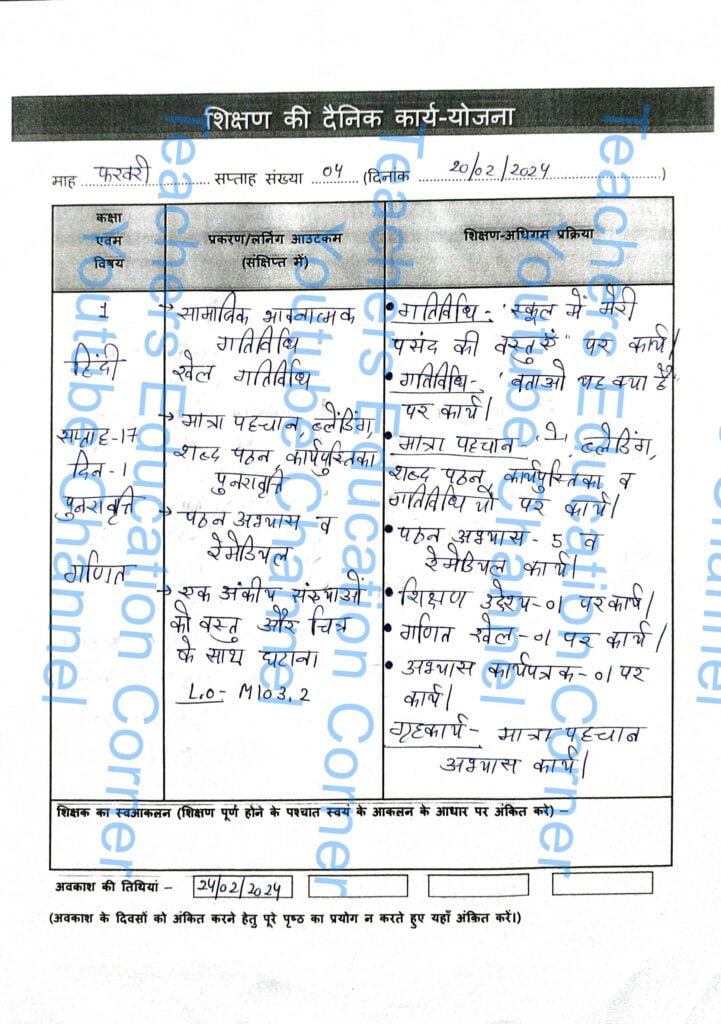 शिक्षण की दैनिक कार्य-योजना
माह फरवरी सप्ताह संख्या 04 (दिनांक 20/02/2024)
कक्षा
एवम
विषय
प्रकरण/लर्निंग आउटकम
(संक्षिप्त में)
शिक्षण-अधिगम प्रक्रिया
1
हिंदी
सप्ताह-17
दिन-1
पुनरावृत्ति
गणित
→ सामाजिक भावनात्मक
गतिविधि
खेल गतिविधि
→ मात्रा पहचान, ब्लेंडिंग,
शब्द पठन, कार्यपुस्तिका
पुनरावृत्ति
→ पठन अभ्यास व
रेमेडियल
→ एक अंकीय संख्याओं
को वस्तु और चित्र
के साथ घटाना
L.O- M103.2
• गतिविधि- 'स्कूल में मेरी
पसंद की वस्तुएँ" पर कार्य।
• गतिविधि- 'बताओ यह क्या है"
पर कार्य।
• मात्रा पहचान- ब्लेंडिंग,
शब्द पठन, कार्यपुस्तिका व
गतिविधियों पर कार्य।
• पठन अभ्यास- 5 व
रेमेडियल कार्य।
• शिक्षण उद्देश्य-01 पर कार्य।
• गणित खेल-01 पर कार्य।
• अभ्यास कार्यपत्रक-01 पर
कार्य।
गृहकार्य- मात्रा पहचान
अभ्यास कार्य।
शिक्षक का स्वआकलन (शिक्षण पूर्ण होने के पश्चात स्वयं के आकलन के आधार पर अंकित करे) –
अवकाश की तिथियां – 24/02/2024
(अवकाश के दिवसों को अंकित करने हेतु पूरे पृष्ठ का प्रयोग न करते हुए यहाँ अंकित करें।)
Teachers Education Corner
Youtube Channel
Teachers Education Corner
Youtube Channel
Teachers Education Corner
Youtube Channel